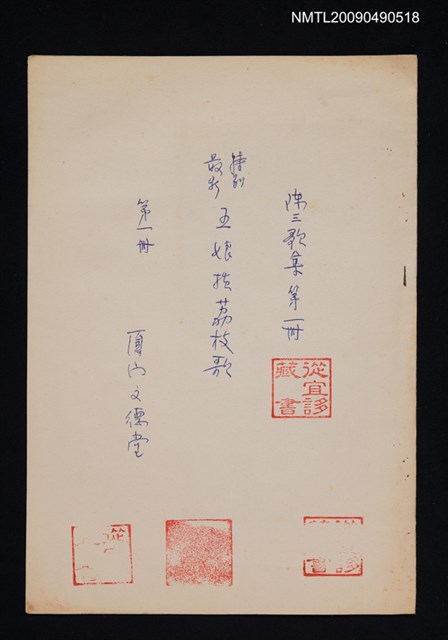 NMTL20090490518
陳三歌集第一冊
特別
最新 五娘挵荔枝歌
第一冊
厦门文德堂
從宜誃
藏書